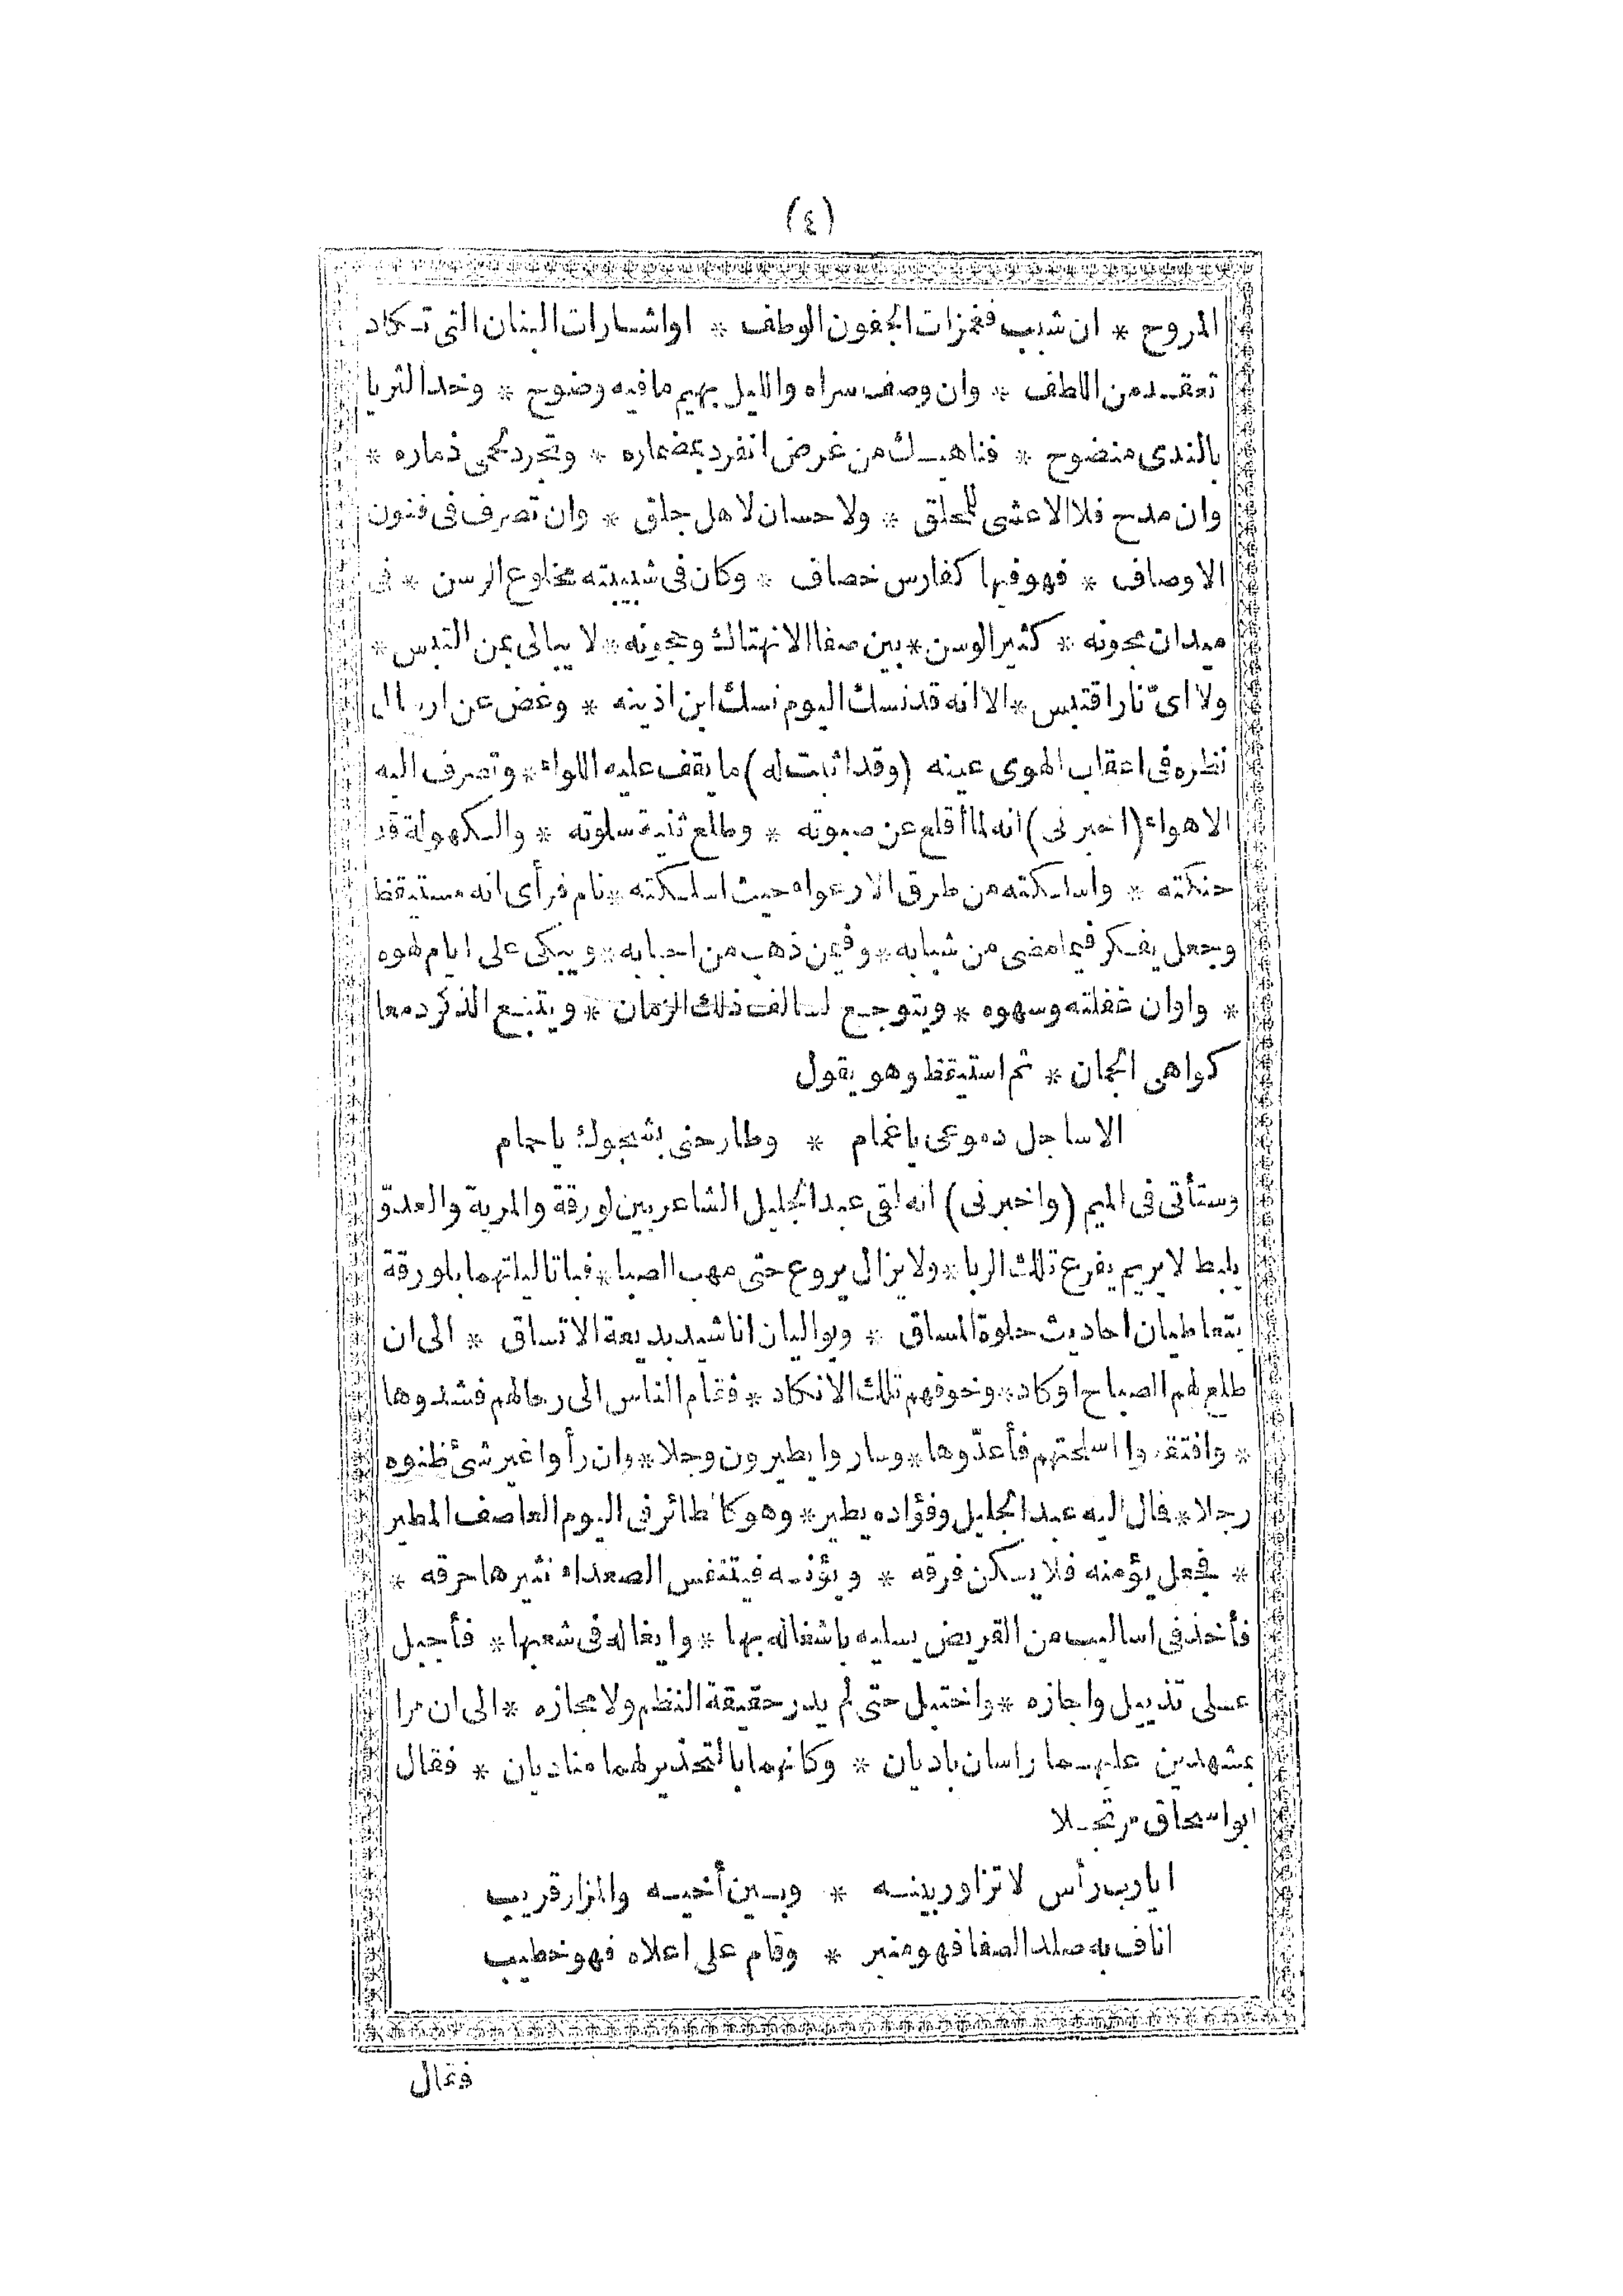 (٤)
المروح * ان شبب فغمزات الجفون الوطف * او اشارات البنان التى تكاد
تعقد من اللطف * وان وصف سراه والليل بهيم ما فيه وضوح * وخد الثريا
بالندى منضوح * فناهيك من غرض انفرد بمضماره * وتجرد لحمى ذماره *
وان مدح فلا الاعشى للمحلق * ولا حسان لاهل جلق * وان تصرف فى فنون
الاوصاف * فهو فيها كفارس خصاف * وكان فى شبيبته مخلوع الرسن * فى
ميدان مجونه * كثير الوسن * بين صفا الانهتاك وحجونه * لا يبالى بمن التبس *
ولا اىّ نار اقتبس * الا انه قد نسك اليوم نسك ابن اذينه * وغض عن ارسال
نظره فى اعقاب الهوى عينه (وقد اثبت له) ما يقف عليه اللواء * وتصرف اليه
الاهواء (اخبرنى) انه لما أقلع عن صبوته * وطلع ثنية سلوته * والكهولة قد
حنكته * واسلكته من طرق الارعواء حيث اسلكته * نام فرأى انه مستيقظ
وجعل يفكر فيما مضى من شبابه * وفيمن ذهب من احبابه * ويبكى على ايام لهوه
* واوان غفلته وسهوه * ويتوجع لسالف ذلك الزمان * ويتبع الذكر دمعا
كواهى الجمان * ثم استيقظ وهو يقول
الا ساجل دموعى يا غمام * وطارحنى بشجوك يا حمام
وستأتى فى الميم (واخبرنى) انه لقى عبد الجليل الشاعر بين لورقة والمرية والعدوّ
يلبط لا يريم يفرع تلك الربا * ولا يزال يروع حتى مهب الصبا * فباتا ليلتهما بلورقة
يتعاطيان احاديث حلوة المساق * ويواليان اناشيد بديعة الاتساق * الى ان
طلع لهم الصباح او كاد * وخوفهم تلك الانكاد * فقام الناس الى رحالهم فشدوها
* وافتقدوا اسلحتهم فأعدّوها * وساروا يطيرون وجلا * وان رأوا غير شئ ظنوه
رجلا * فمال اليه عبد الجليل وفؤاده يطير * وهو كالطائر فى اليوم العاصف المطير
* فجعل يؤمنه فلا يسكن فرقه * ويؤنسه فيتنفس الصعداء تثيرها حرقه *
فأخذ فى اساليب من القريض يسليه باشغاله بها * وايغاله فى شعبها * فأحيل
على تذييل واجازه * واختبل حتى لم يدر حقيقة النظم ولا مجازه * الى ان مرا
بمشهدين عليهما راسان باديان * وكانهما بالتحذير لهما مناديان * فقال
ابو اسحاق مرتجلا
ايا رب رأس لا تزاور بينه * وبين أخيه والمزار قريب
اناف به صلد الصفا فهو منبر * وقام على اعلاه فهو خطيب
فقال